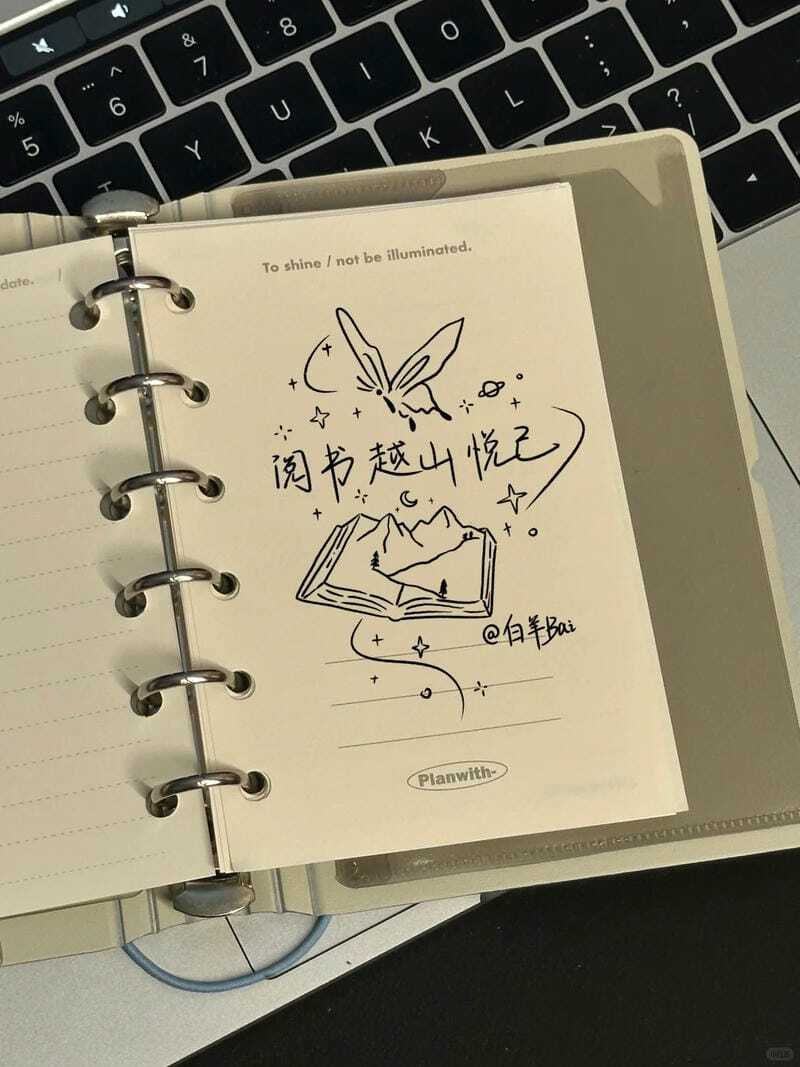 % 5
^ 6
& 7
* 8
Y
U
I
O
K
L
: ;
? /
>
date. /
To shine / not be illuminated.
阅书 越山 悦己
@白羊Bai
Planwith-